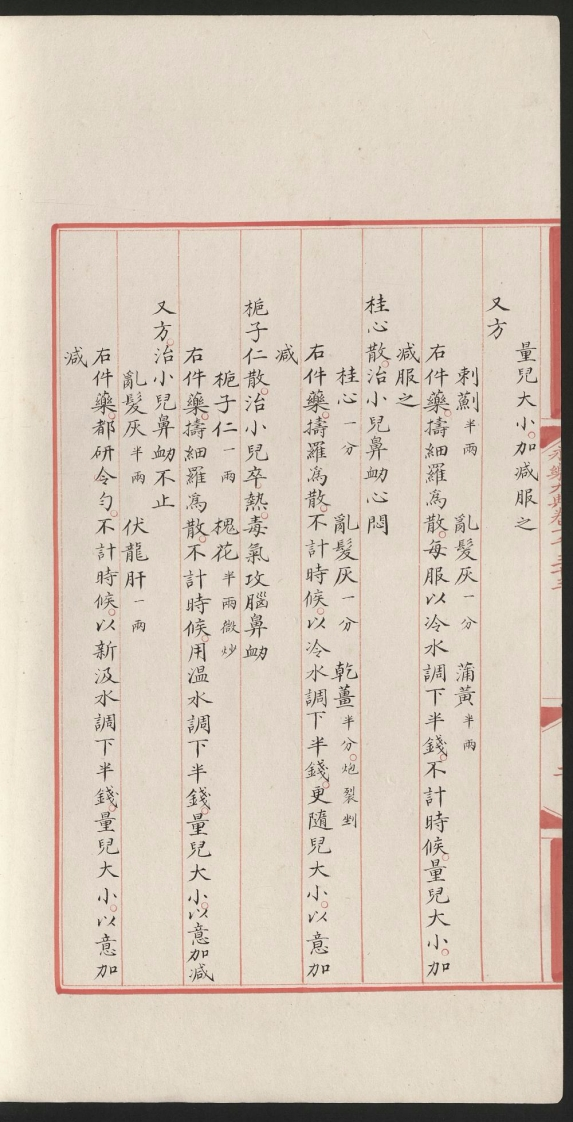 量兒大小。加減服之
又方
刺薊半兩　亂髮灰一分　蒲黃半兩
右件藥。擣細羅爲散。每服以冷水調下半錢。不計時候。量兒大小。加
減服之
桂心散。治小兒鼻衂心悶
桂心一分　亂髮灰一分　乾薑半分。炮裂剉
右件藥。擣羅爲散。不計時候。以冷水調下半錢。更隨兒大小。以意加
減
梔子仁散。治小兒卒熱。毒氣攻腦鼻衂
梔子仁一兩　槐花半兩微炒
右件藥。擣細羅爲散。不計時候。用溫水調下半錢。量兒大小。以意加減
又方。治小兒鼻衂不止
亂髮灰半兩　伏龍肝一兩
右件藥。都研令勻。不計時候。以新汲水調下半錢。量兒大小。以意加
減